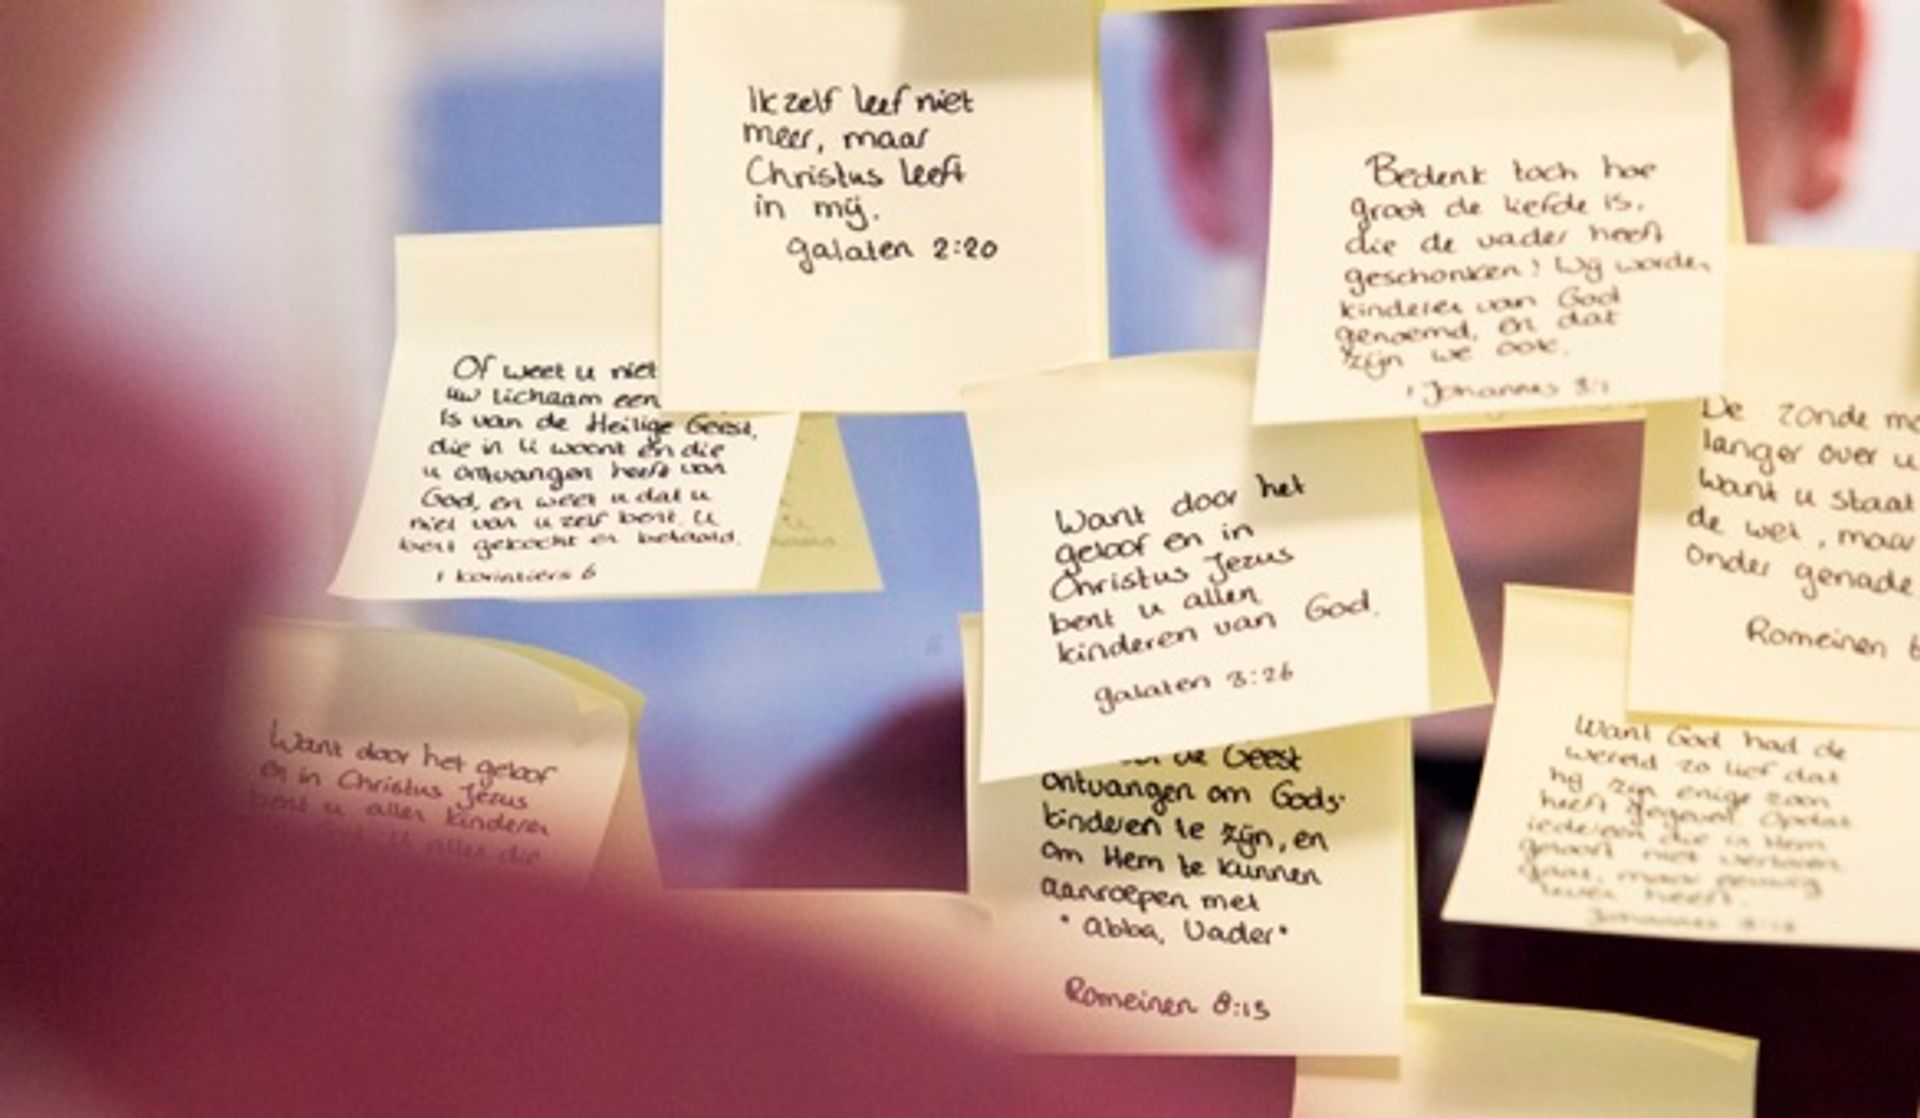 Ik zelf leef niet
meer, maar
Christus leeft
in mij.
galaten 2:20
Bedenk toch hoe
groot de liefde is,
die de vader heeft
geschonken! Wij worden
kinderen van God
genoemd, en dat
zijn we ook.
1 Johannes 3:1
Of weet u niet
uw lichaam een
is van de Heilige Geest,
die in U woont en die
u ontvangen heeft van
God, en weet u dat u
niet van u zelf bent. U
bent gekocht en betaald.
1 korintiers 6
Want door het
geloof en in
Christus Jezus
bent u allen
kinderen van God.
galaten 3:26
De zonde
langer over u
Want u staat
de wet, maar
onder genade
Romeinen
Want door het geloof
en in Christus Jezus
bent u allen kinderen
de Geest
ontvangen om Gods
kinderen te zijn, en
om Hem te kunnen
aanroepen met
"abba, Vader"
Romeinen 8:15
Want God had de
wereld zo lief dat
hij zijn enige zoon
heeft gegeven opdat
iedereen die in Hem
gelooft niet verloren
gaat, maar eeuwig
leven heeft.
Johannes 3:16